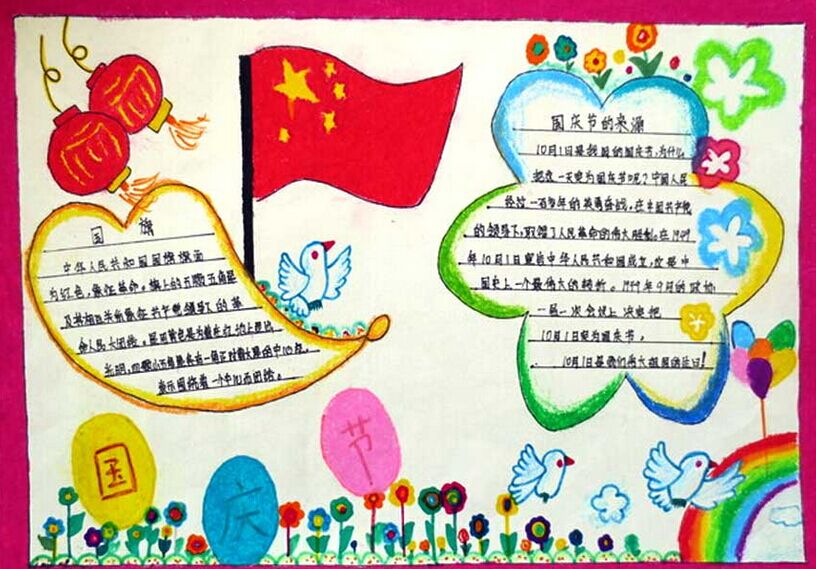 国旗
中华人民共和国国旗旗面
为红色,象征革命。旗上的五颗五角星
及其相互关系象征共产党领导下的革
命人民大团结。
光明,四颗小五角星各有一
表示围绕着一个中心而团结。
国庆节的来源
10月1日是我国的国庆节,为什么
把这一天定为国庆节呢?中国人民
经过一百多年的英勇奋战,在中国共产党
的领导下,取得了人民革命的伟大胜利。在1949
年10月1日宣告中华人民共和国成立,这是中
国史上一个最伟大的转折。1949年9月的政协
一届一次会议上决定把
10月1日定为国庆节。
10月1日是我们伟大祖国的生日!
国
庆
节